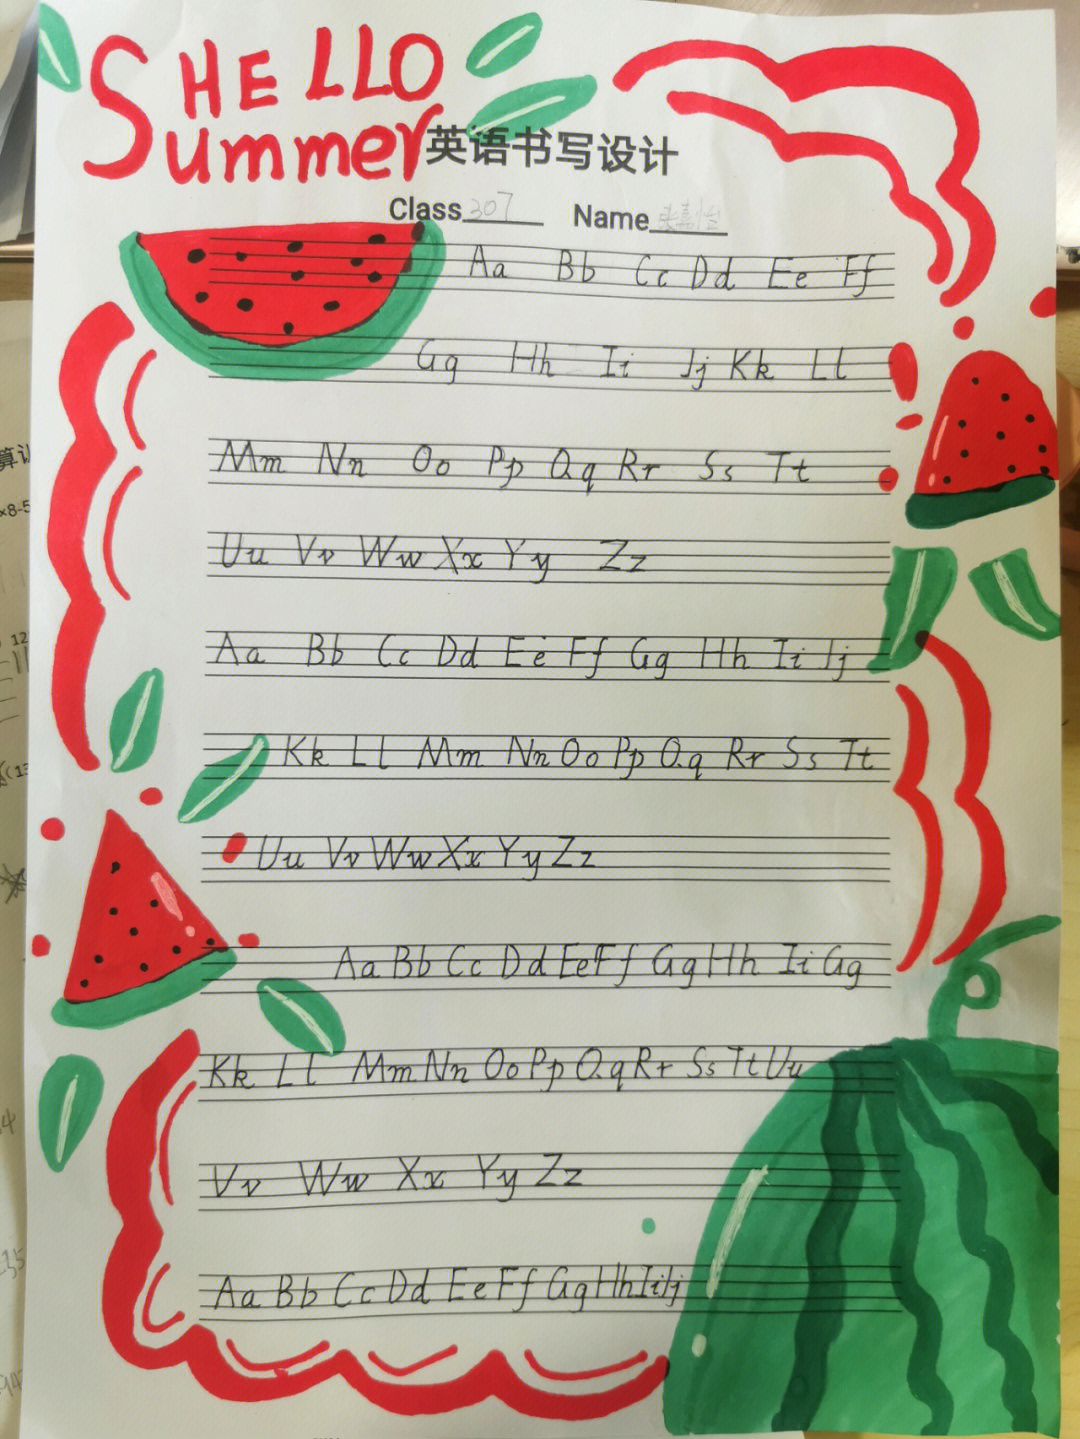 HELLO
Summer
英语书写设计
Class 307 Name
Aa Bb Cc Dd Ee Ff
Gg Hh Ii Jj Kk Ll
Mm Nn Oo Pp Qq Rr Ss Tt
Uu Vv Ww Xx Yy Zz
Aa Bb Cc Dd Ee Ff Gg Hh Ii Jj
Kk Ll Mm Nn Oo Pp Qq Rr Ss Tt
Uu Vv Ww Xx Yy Zz
Aa Bb Cc Dd Ee Ff Gg Hh Ii Gg
Kk Ll Mm Nn Oo Pp Qq Rr Ss Tt Uu
Vv Ww Xx Yy Zz
Aa Bb Cc Dd Ee Ff Gg Hh Ii Jj